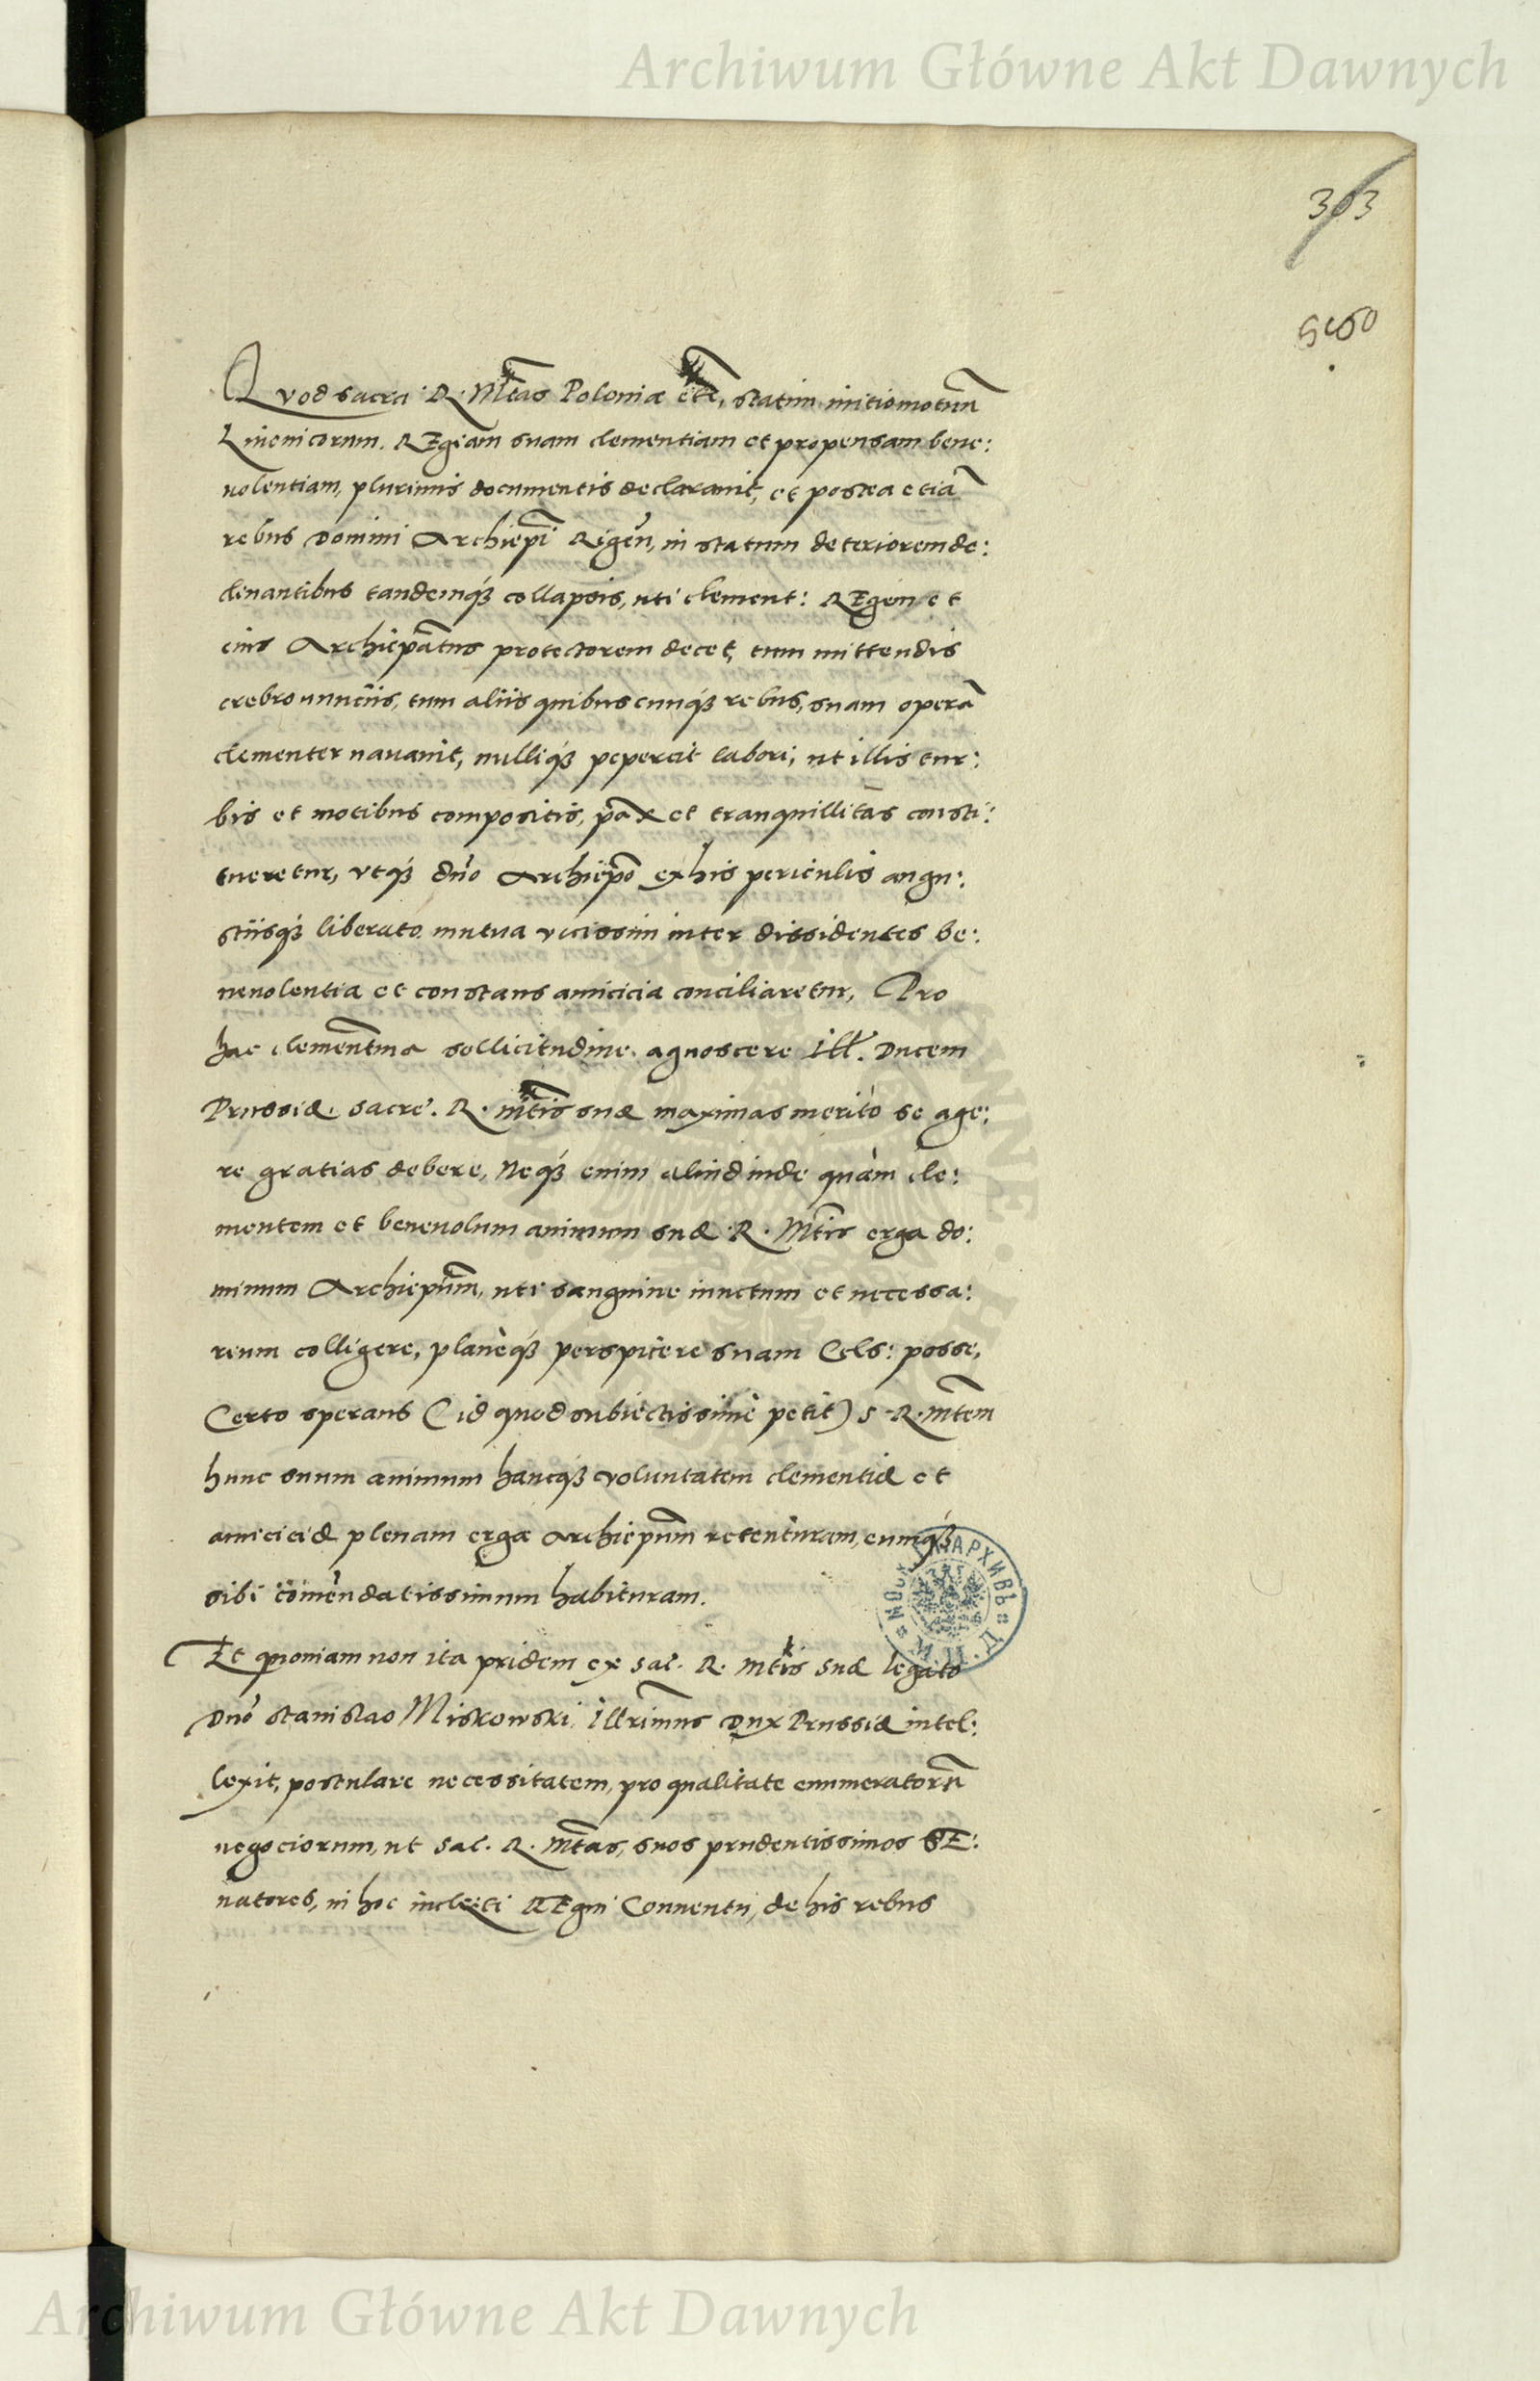 Archiwum Główne Akt Dawnych
303
Quod sacra R. Mtas Poloniæ etc, statim initio motuum
Liuonicorum. REgiam suam clementiam et propensam bene:
uolentiam, plurimis documentis declarauit, et postea etiā
rebus Domini Archiepī Rigeñ, in statum deteriorem de:
clinantibus tandemq3 collapsis, uti clement: REgem et
eius Archiep̄atus protectorem decet, tum mittendis
crebro nuncijs, tum alijs quibuscunq3 rebus, suam operā
clementer nauauit, nulliq3 pepercit labori, ut illis tur:
bis et motibus compositis, pax et tranquillitas consti:
tueretur, utq3 dño Archiep̄o ex his periculis angu:
stijsq3 liberato mutua vicissim inter dissidentes be:
neuolentia et constans amicicia conciliaretur, Pro
hac clementma sollicitudine agnoscere Ill. Ducem
Prussiæ. sacre. R. mtis suæ maximas meritò se age:
re gratias debere, Neq3 enim aliud inde quàm cle:
mentem et beneuolum animum suæ R. Mtis erga do:
minum Archiep̄um, uti sanguine iunctum et necessa:
rium colligere, planèq3 perspicere suam Cels: posse,
Certo sperans (id quod subiectissimè petit) S. R. mtem
hunc suum animum hancq3 voluntatem clementiæ et
amiciciæ plenam erga Archiep̄um retenturam, eumq3
sibi com̄endatissimum habituram.
Et quoniam non ita pridem ex Sac. R. mtis suæ legato
Dño Stanislao Miskowski, Illrimus Dux Prussiæ intel:
lexit, postulare necessitatem, pro qualitate enumeratorū
negociorum, ut Sac. R. mtas, suos prudentissimos SE:
natores, in hoc inclyti REgni Conuentu, de his rebus
Archiwum Główne Akt Dawnych